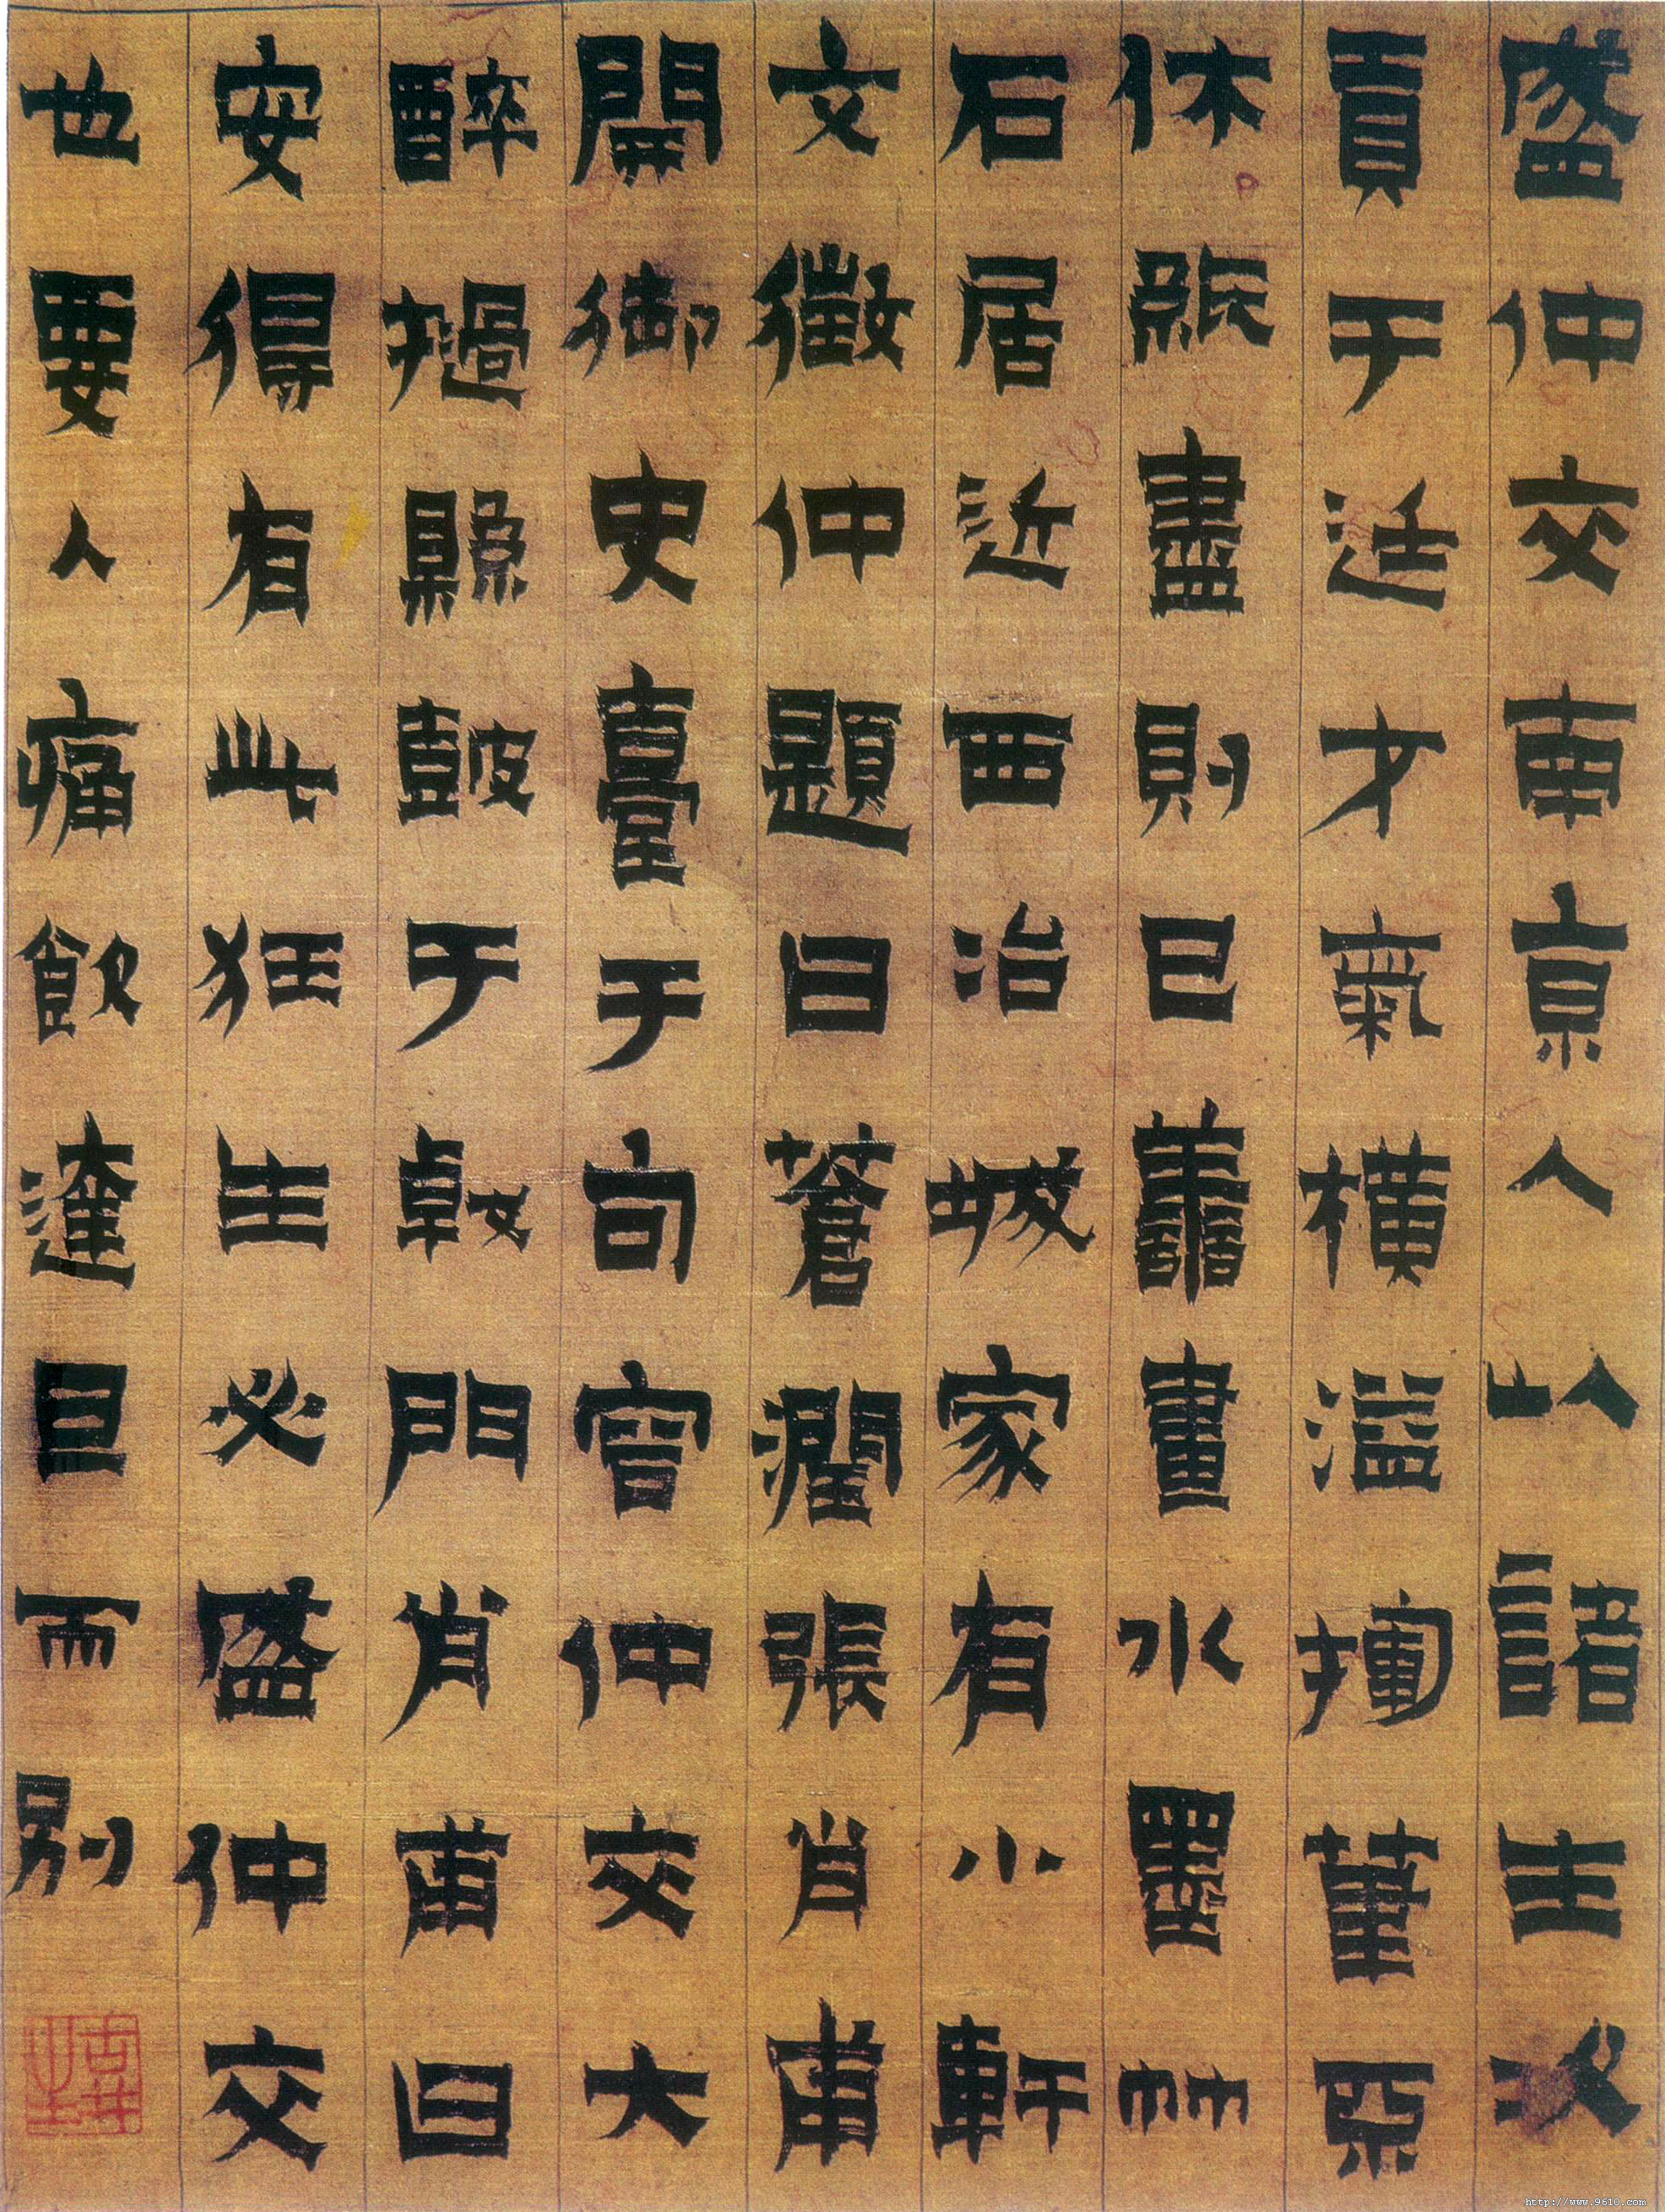 盛仲交南京人以諸生次
貢于廷才氣橫溢揮筆不
休紙盡則已善畫水墨竹
石居近西冶城家有小軒
文徵仲題曰蒼潤張肖甫
開御史臺于句容仲交大
醉撾縣鼓于戟門肖甫曰
安得有此狂生必盛仲交
也要入痛飲達旦而別
http://www.9610.com